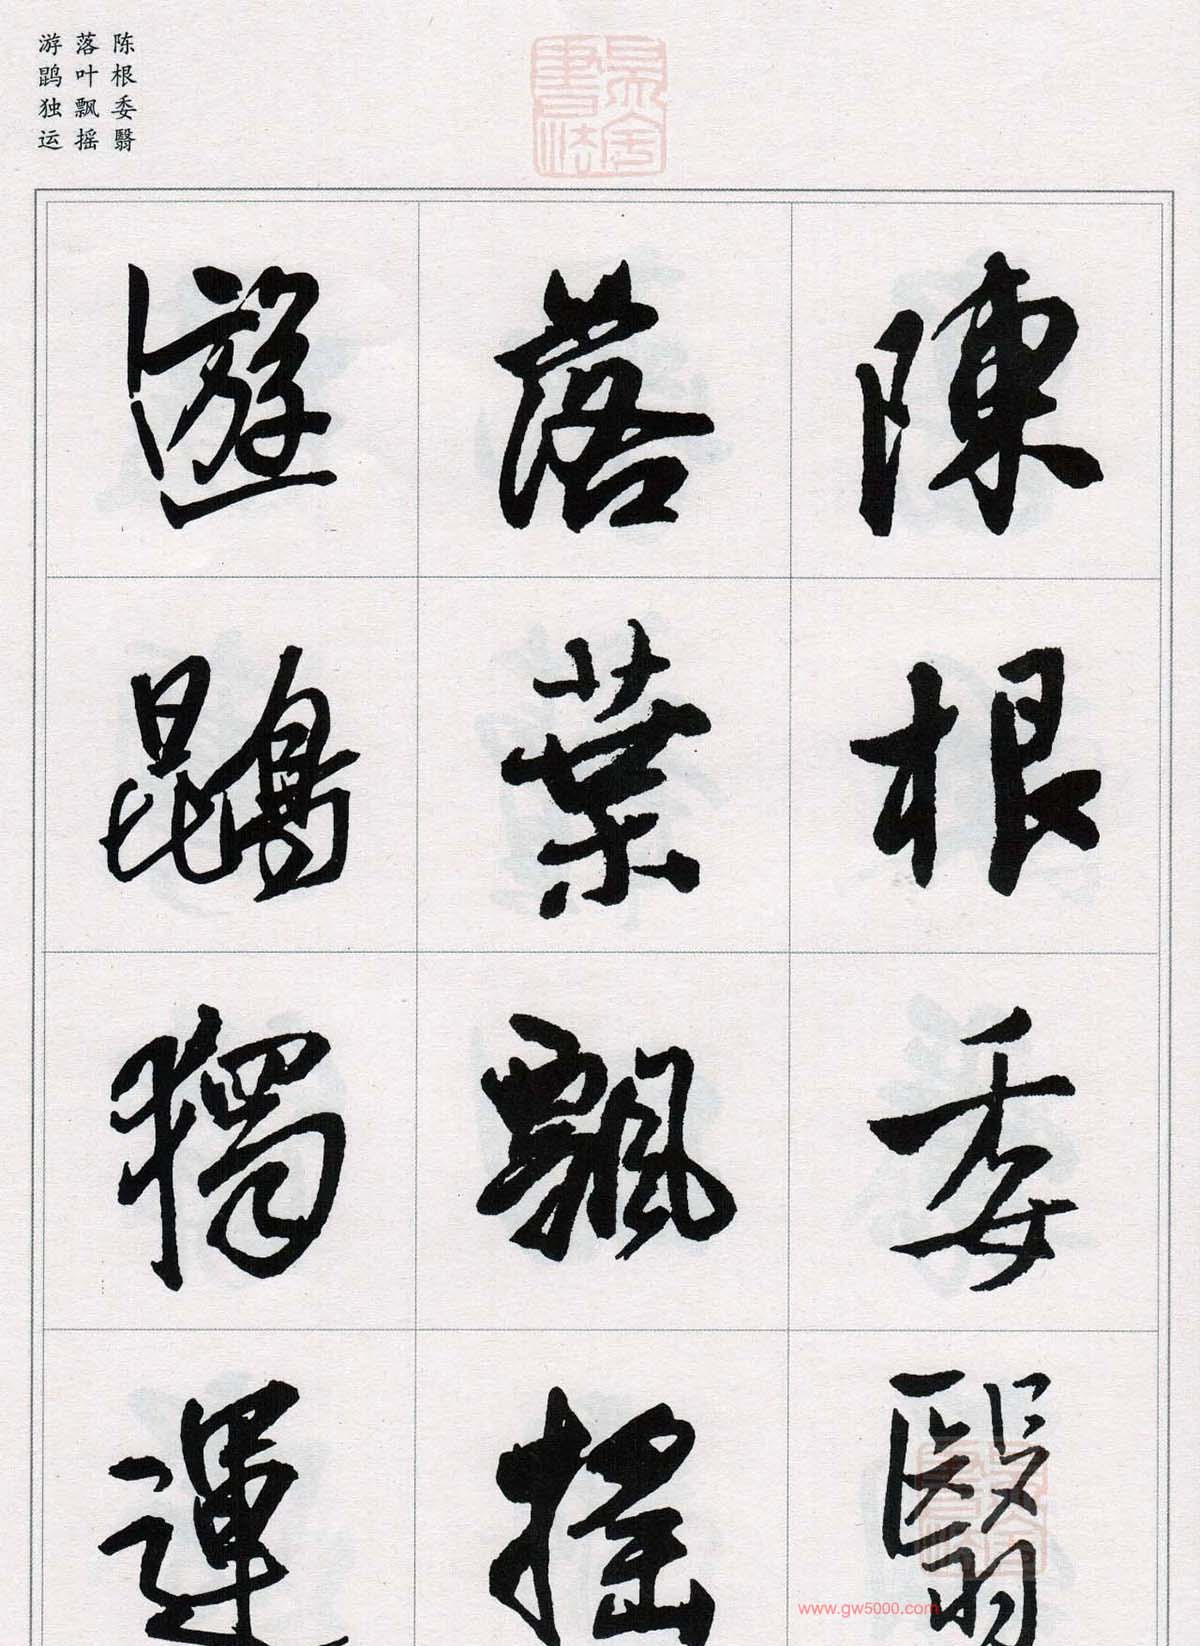 陈根委翳
落叶飘摇
游鹍独运
昙舍書法
陳根委翳
落葉飄摇
遊鵾獨運
www.gw5000.com